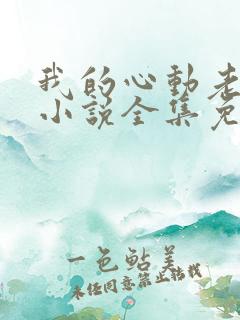 我的心動老
小說全集免
一色鮎美
未经同意禁止转载